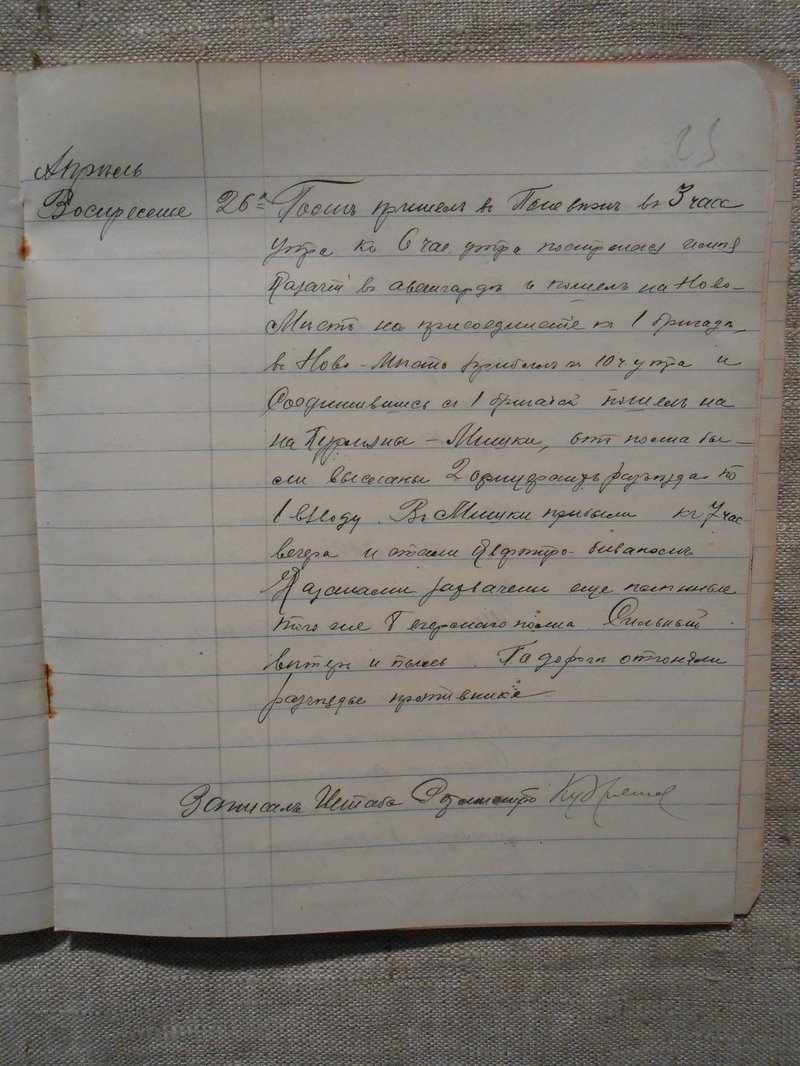 23
Апрель
Воскресенье 26го Полкъ пришелъ въ Поневѣжъ въ 3 часа
утра къ 6 час. утра построился имѣя
казачій въ авангардѣ и пошелъ на Ново-
Мѣсто на присоединеніе къ 1 бригадѣ,
въ Ново-Мѣсто прибылъ въ 10 ч утра и
Соединившись съ 1 бригадой пошелъ на
на Курмяны - Мицки, отъ полка бы-
ли высланы 2 разъѣзда по
1 взводу. Въ Мицки прибыли къ 7 час
вечера и стали бивакомъ
назначены еще
того же Егерскаго полка. Сильный
вѣтеръ и пыль. По дорогѣ отгоняли
разъѣзды противника.
Записалъ Штабъ Ротмистръ